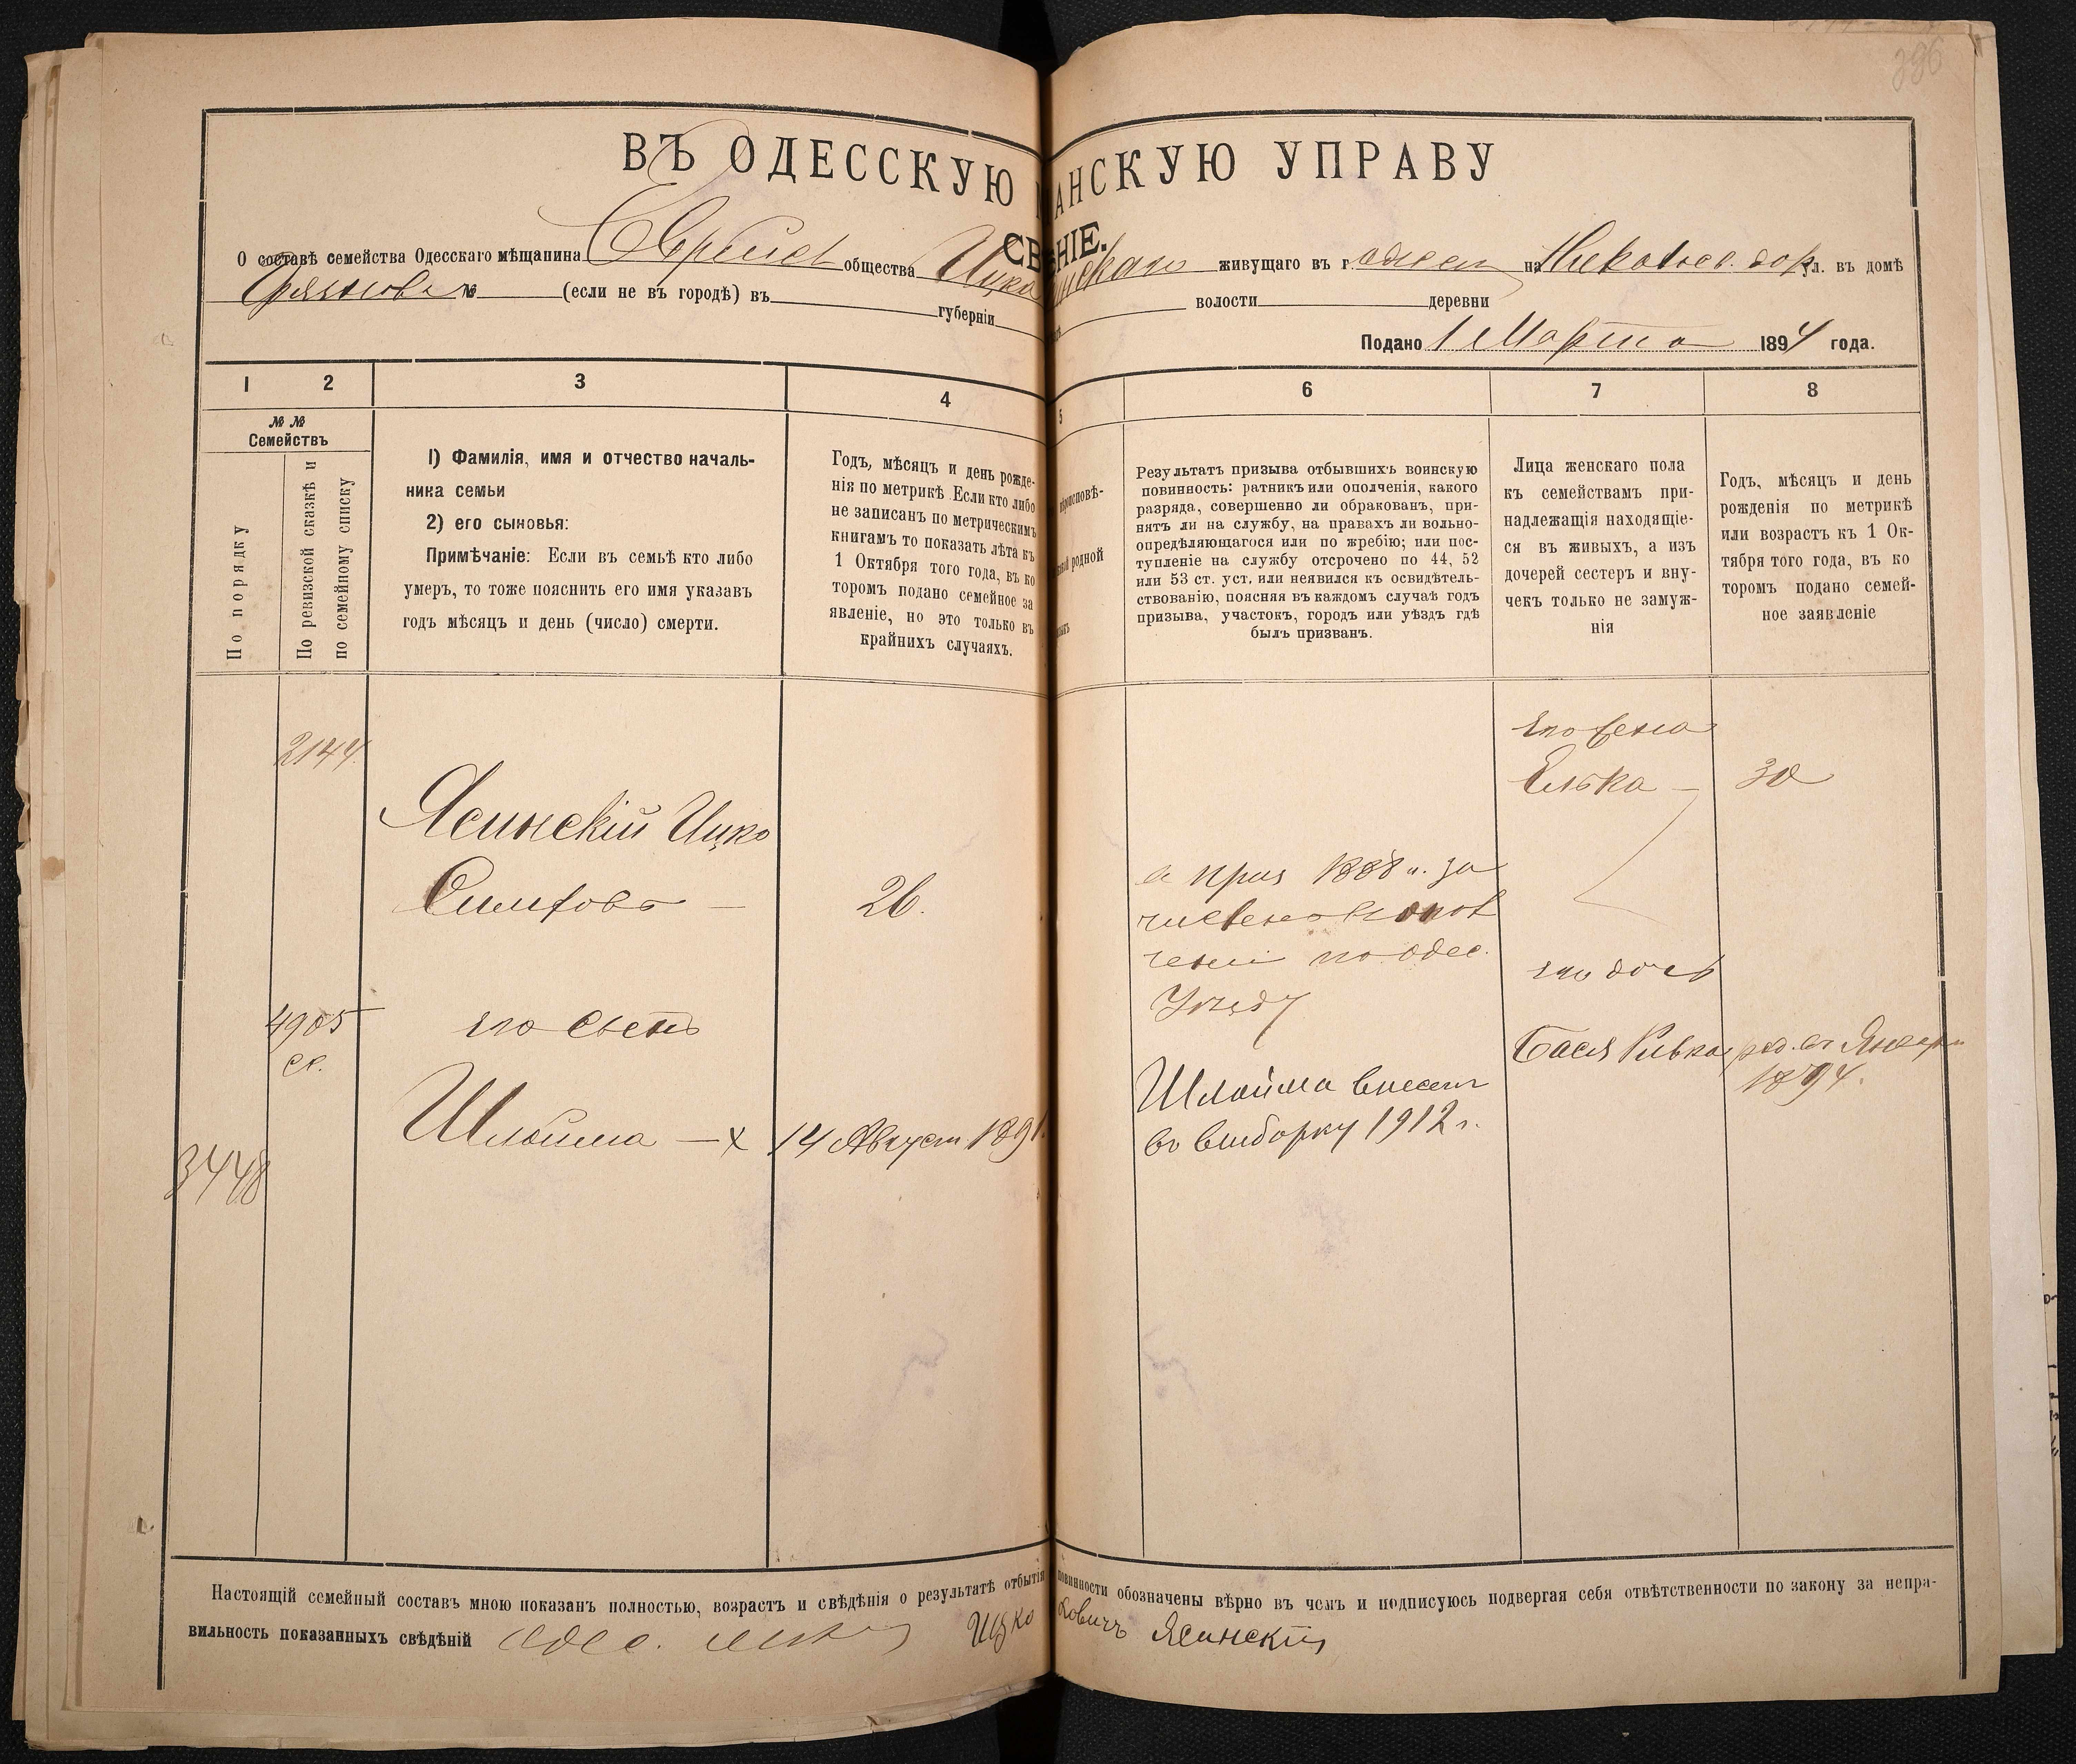 396
ВЪ ОДЕССКУЮ АНСКУЮ УПРАВУ
СВ НІЕ.
О составѣ семейства Одесскаго мѣщанина Еврейск общества Ицка инскаго живущаго въ г. Одессѣ на Николаев. дор. ул. въ домѣ
№ (если не въ городѣ) въ губерніи волости деревни
Подано 1 Марта 1894 года.
1 2 3 4 5 6 7 8
№ №
Семействъ
По порядку
По ревизской сказкѣ и
по семейному списку
1) Фамилія, имя и отчество началь-
ника семьи
2) его сыновья:
Примѣчаніе: Если въ семьѣ кто либо
умеръ, то тоже пояснить его имя указавъ
годъ мѣсяцъ и день (число) смерти.
Годъ, мѣсяцъ и день рожде-
нія по метрикѣ. Если кто либо
не записанъ по метрическимъ
книгамъ то показать лѣта къ
1 Октября того года, въ ко
торомъ подано семейное за
явленіе, но это только въ
крайнихъ случаяхъ.
роисповѣ-
родной
Результатъ призыва отбывшихъ воинскую
повинность: ратникъ или ополченія, какого
разряда, совершенно ли обракованъ, при-
нятъ ли на службу, на правахъ ли вольно-
опредѣляющагося или по жребію; или пос-
тупленіе на службу отсрочено по 44, 52
или 53 ст. уст. или неявился къ освидѣтель-
ствованію, поясняя въ каждомъ случаѣ годъ
призыва, участокъ, городъ или уѣздъ гдѣ
былъ призванъ.
Лица женскаго пола
къ семействамъ при-
надлежащія находящіе-
ся въ живыхъ, а изъ
дочерей сестеръ и вну-
чекъ только не замуж-
нія
Годъ, мѣсяцъ и день
рожденія по метрикѣ
или возрастъ къ 1 Ок-
тября того года, въ ко
торомъ подано семей-
ное заявленіе
2144.
его жена
Элька — 30
Ясинскій Ицко
26.
приз 1888 г. за
численъ в опол
ченіе по одес.
Уѣзду
его дочь
4905
ск.
его сынъ
Бася Ривка, род. въ Январи
1894.
Шлойма — х 14 Август 1891
Шлойма внесен
въ выборку 1912 г.
3448
Настоящій семейный составъ мною показанъ полностью, возрастъ и свѣдѣнія о результатѣ отбытія повинности обозначены вѣрно въ чемъ и подписуюсь подвергая себя отвѣтственности по закону за непра-
вильность показанныхъ свѣдѣній Одес. Ицко овичъ Ясинскій